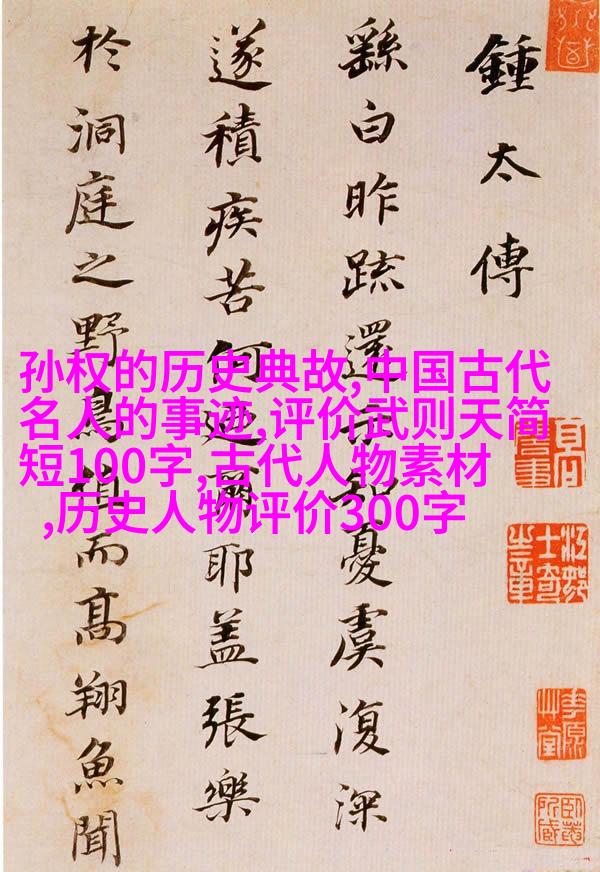 鍾太傅
繇白昨疏還示知憂虞復深
遂積疾苦何迺爾耶盖張樂
於洞庭之野鳥值而髙翔魚聞
孙权的历史典故,中国古代
名人的事迹,评价武则天简
短100字,古代人物素材
,历史人物评价300字